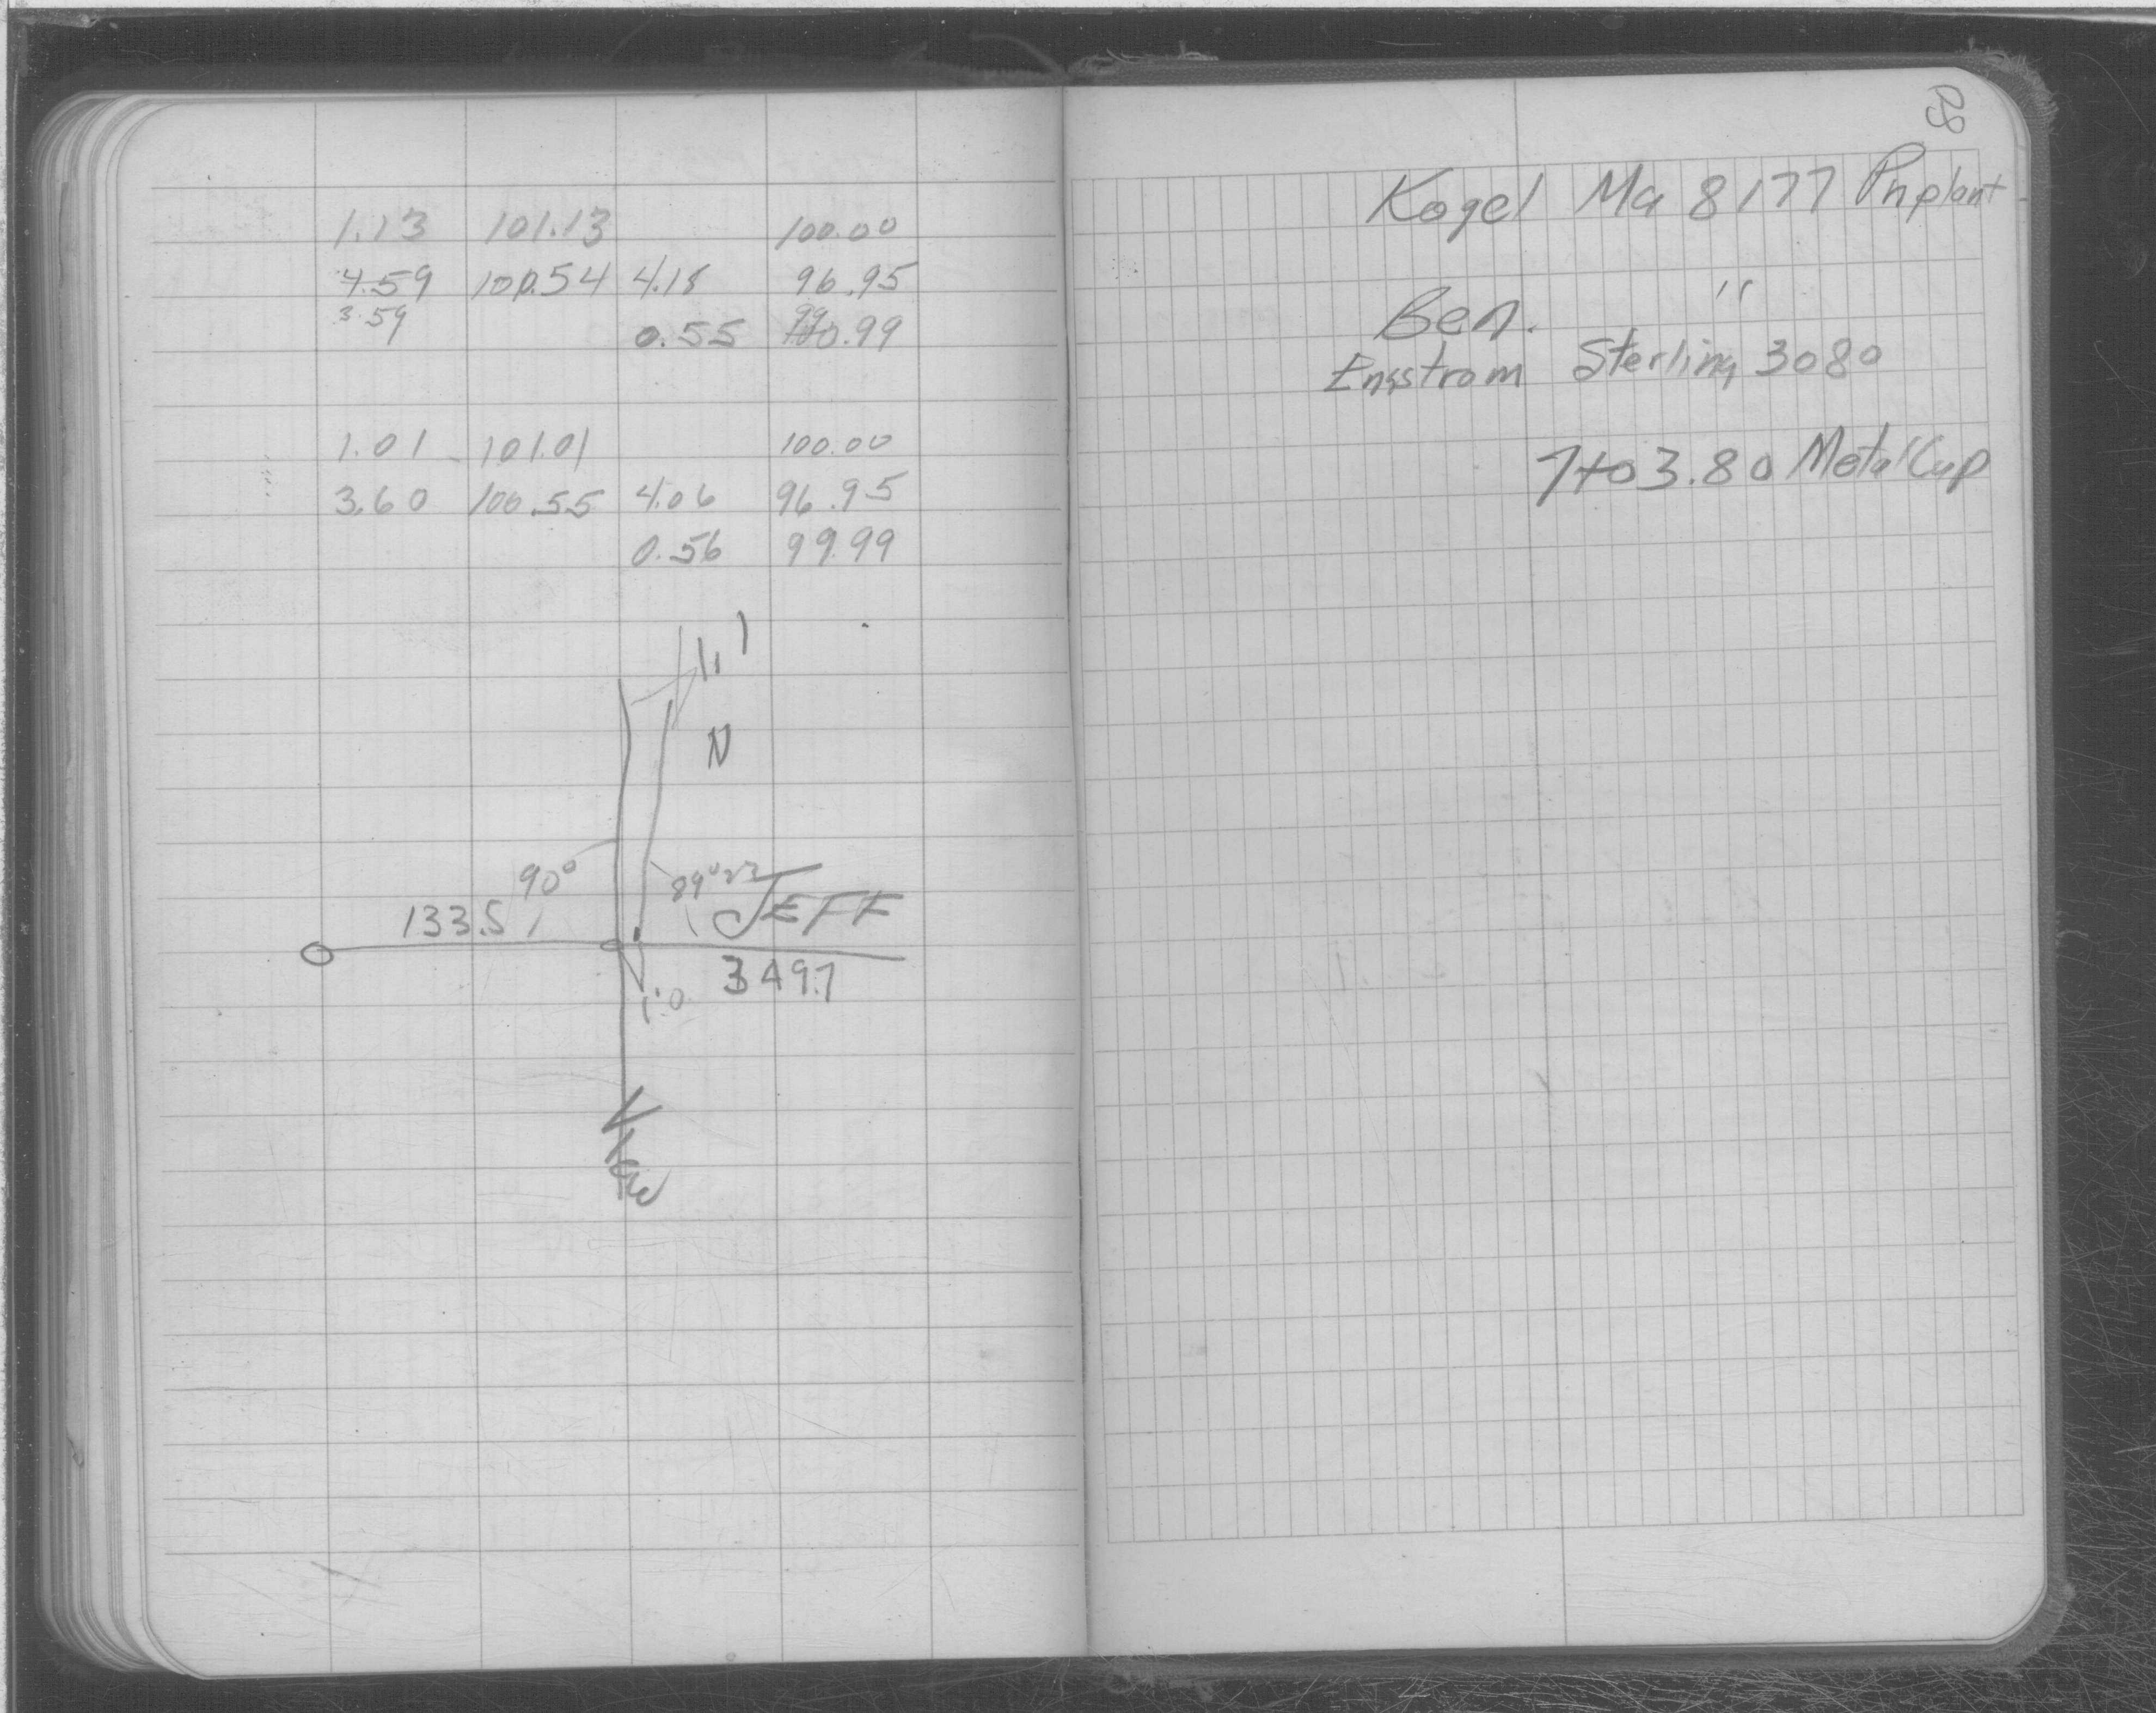 1.13 101.13 100.00
4.59 100.54 4.18 96.95
3.59 99
0.55 100.99
1.01 101.01 100.00
3.60 100.55 4.06 96.95
0.56 99.99
1.1
N
90° 89°22
133.5 JEFF
349.7
1.0
View
Kogel Ma 8177 Pnplant
Ben. "
Engstrom Sterling 3080
7+03.80 Metal Cup